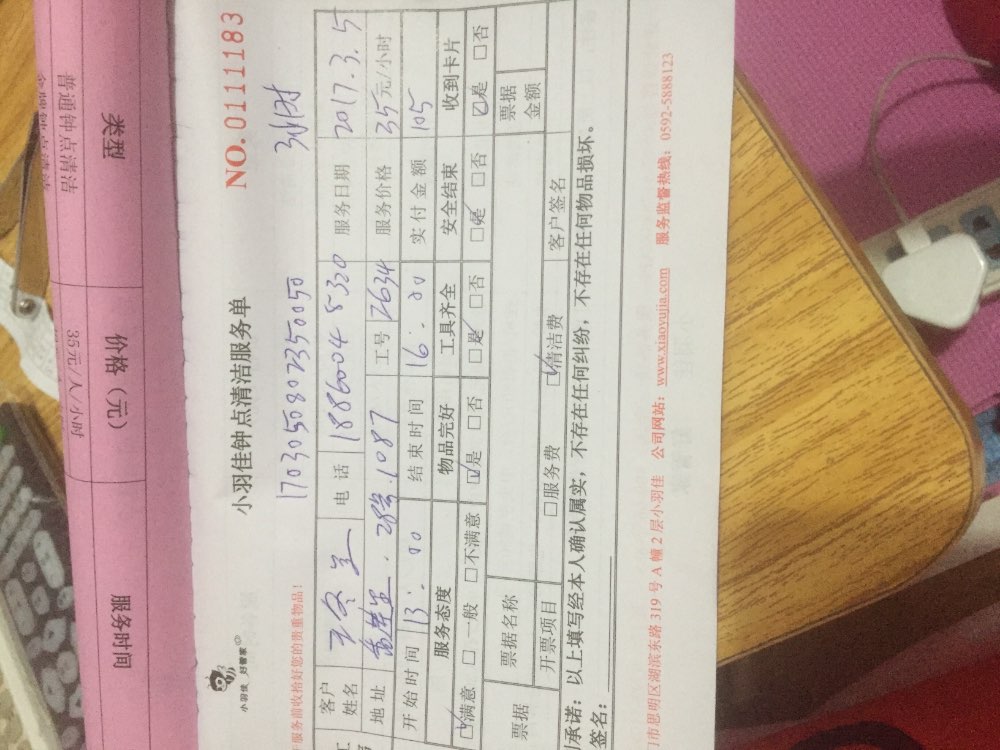 类型
价格（元）
服务时间
普通钟点清洁
35元/人/小时
NO.0111183
小羽佳钟点清洁服务单
小羽佳 好管家
服务前收拾好您的贵重物品！
1703050802350050
3小时
客户姓名
电话 1886004 8320
服务日期 2017.3.5
地址
28号.1087
工号 2634
服务价格 35元/小时
开始时间 13:00
结束时间 16:00
实付金额 105
服务态度
物品完好
工具齐全
安全结束
收到卡片
☑满意 □一般 □不满意
☑是 □否
☑是 □否
☑是 □否
☑是 □否
票据
票据名称
票据金额
开票项目
□服务费
☑清洁费
客户签名
承诺：以上填写经本人确认属实，不存在任何纠纷，不存在任何物品损坏。
签名：
市思明区湖滨东路 319 号 A 幢 2 层小羽佳 公司网站：www.xiaoyujia.com 服务监督热线：0592-5888123